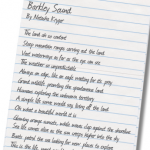 Barkley Sound
By Natasha Kryger
The land oh so content
Steep mountain ranges carving out the land
Vast waterways as far as the eye can see
The weather so unpredictable
Always on edge, like an eagle waiting for its prey
Grand wildlife, guarding the questionless land
Humans exploring the unknown territory
A simple life some would say, living off the land
Oh what a beautiful world it is
Glowing orange sunsets, subtle waves slap against the shoreline
Sea life comes alive as the sun creeps higher into the sky
Boats patrol the sea looking for new places to explore
This is the life